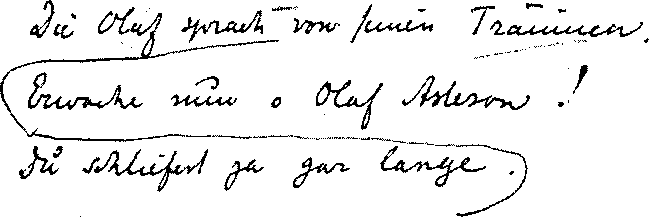 Die Olaf sprach von seinen Träumen.
Erwache nun o Olaf Åsteson!
Du schliefest ja gar lange.